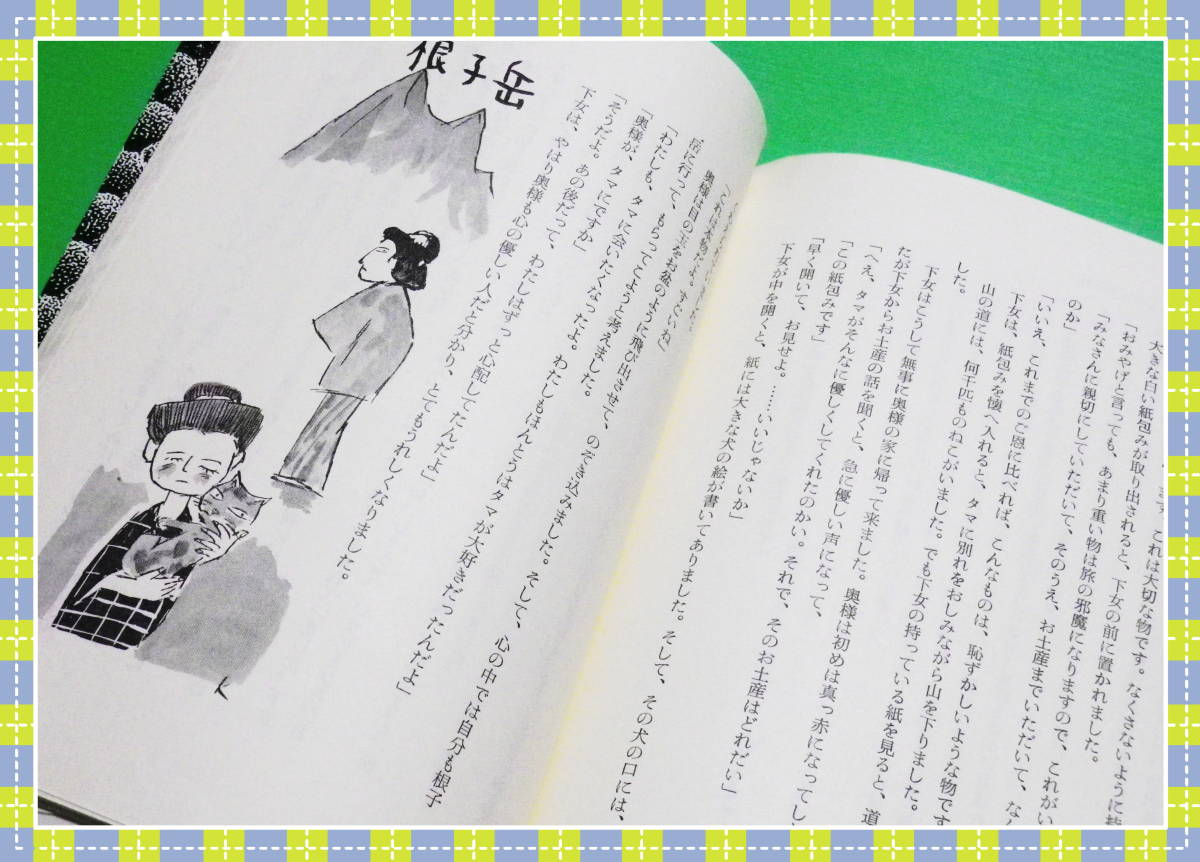 ます。これは大切な物です。なくさないように
大きな白い紙包みが取り出されると、下女の前に置かれました。
「おみやげと言っても、あまり重い物は旅の邪魔になりますので、これがい
「みなさんに親切にしていただいて、そのうえ、お土産までいただいて、な
のか」
「いいえ、これまでのご恩に比べれば、こんなものは、恥ずかしいような物です
下女は、紙包みを懐へ入れると、タマに別れをおしみながら山を下りました。
山の道には、何千匹ものねこがいました。でも下女の持っている紙を見ると、道
した。
下女はこうして無事に奥様の家に帰って来ました。奥様は初めは真っ赤になってし
たが下女からお土産の話を聞くと、急に優しい声になって、
「へえ、タマがそんなに優しくしてくれたのかい。それで、そのお土産はどれだい」
「この紙包みです」
「早く開いて、お見せよ。……いいじゃないか」
下女が中を開くと、紙には大きな犬の絵が書いてありました。そして、その犬の口には、
「これは本物だよ。すごいね」
奥様は目の玉をお盆のように飛び出させて、のぞき込みました。そして、心の中では自分も根子
岳に行って、もらってこようと考えました。
「わたしも、タマに会いたくなったよ。わたしもほんとうはタマが大好きだったんだよ」
「奥様が、タマにですか」
「そうだよ。あの後だって、わたしはずっと心配してたんだよ」
下女は、やはり奥様も心の優しい人だと分かり、とてもうれしくなりました。
根子岳
K